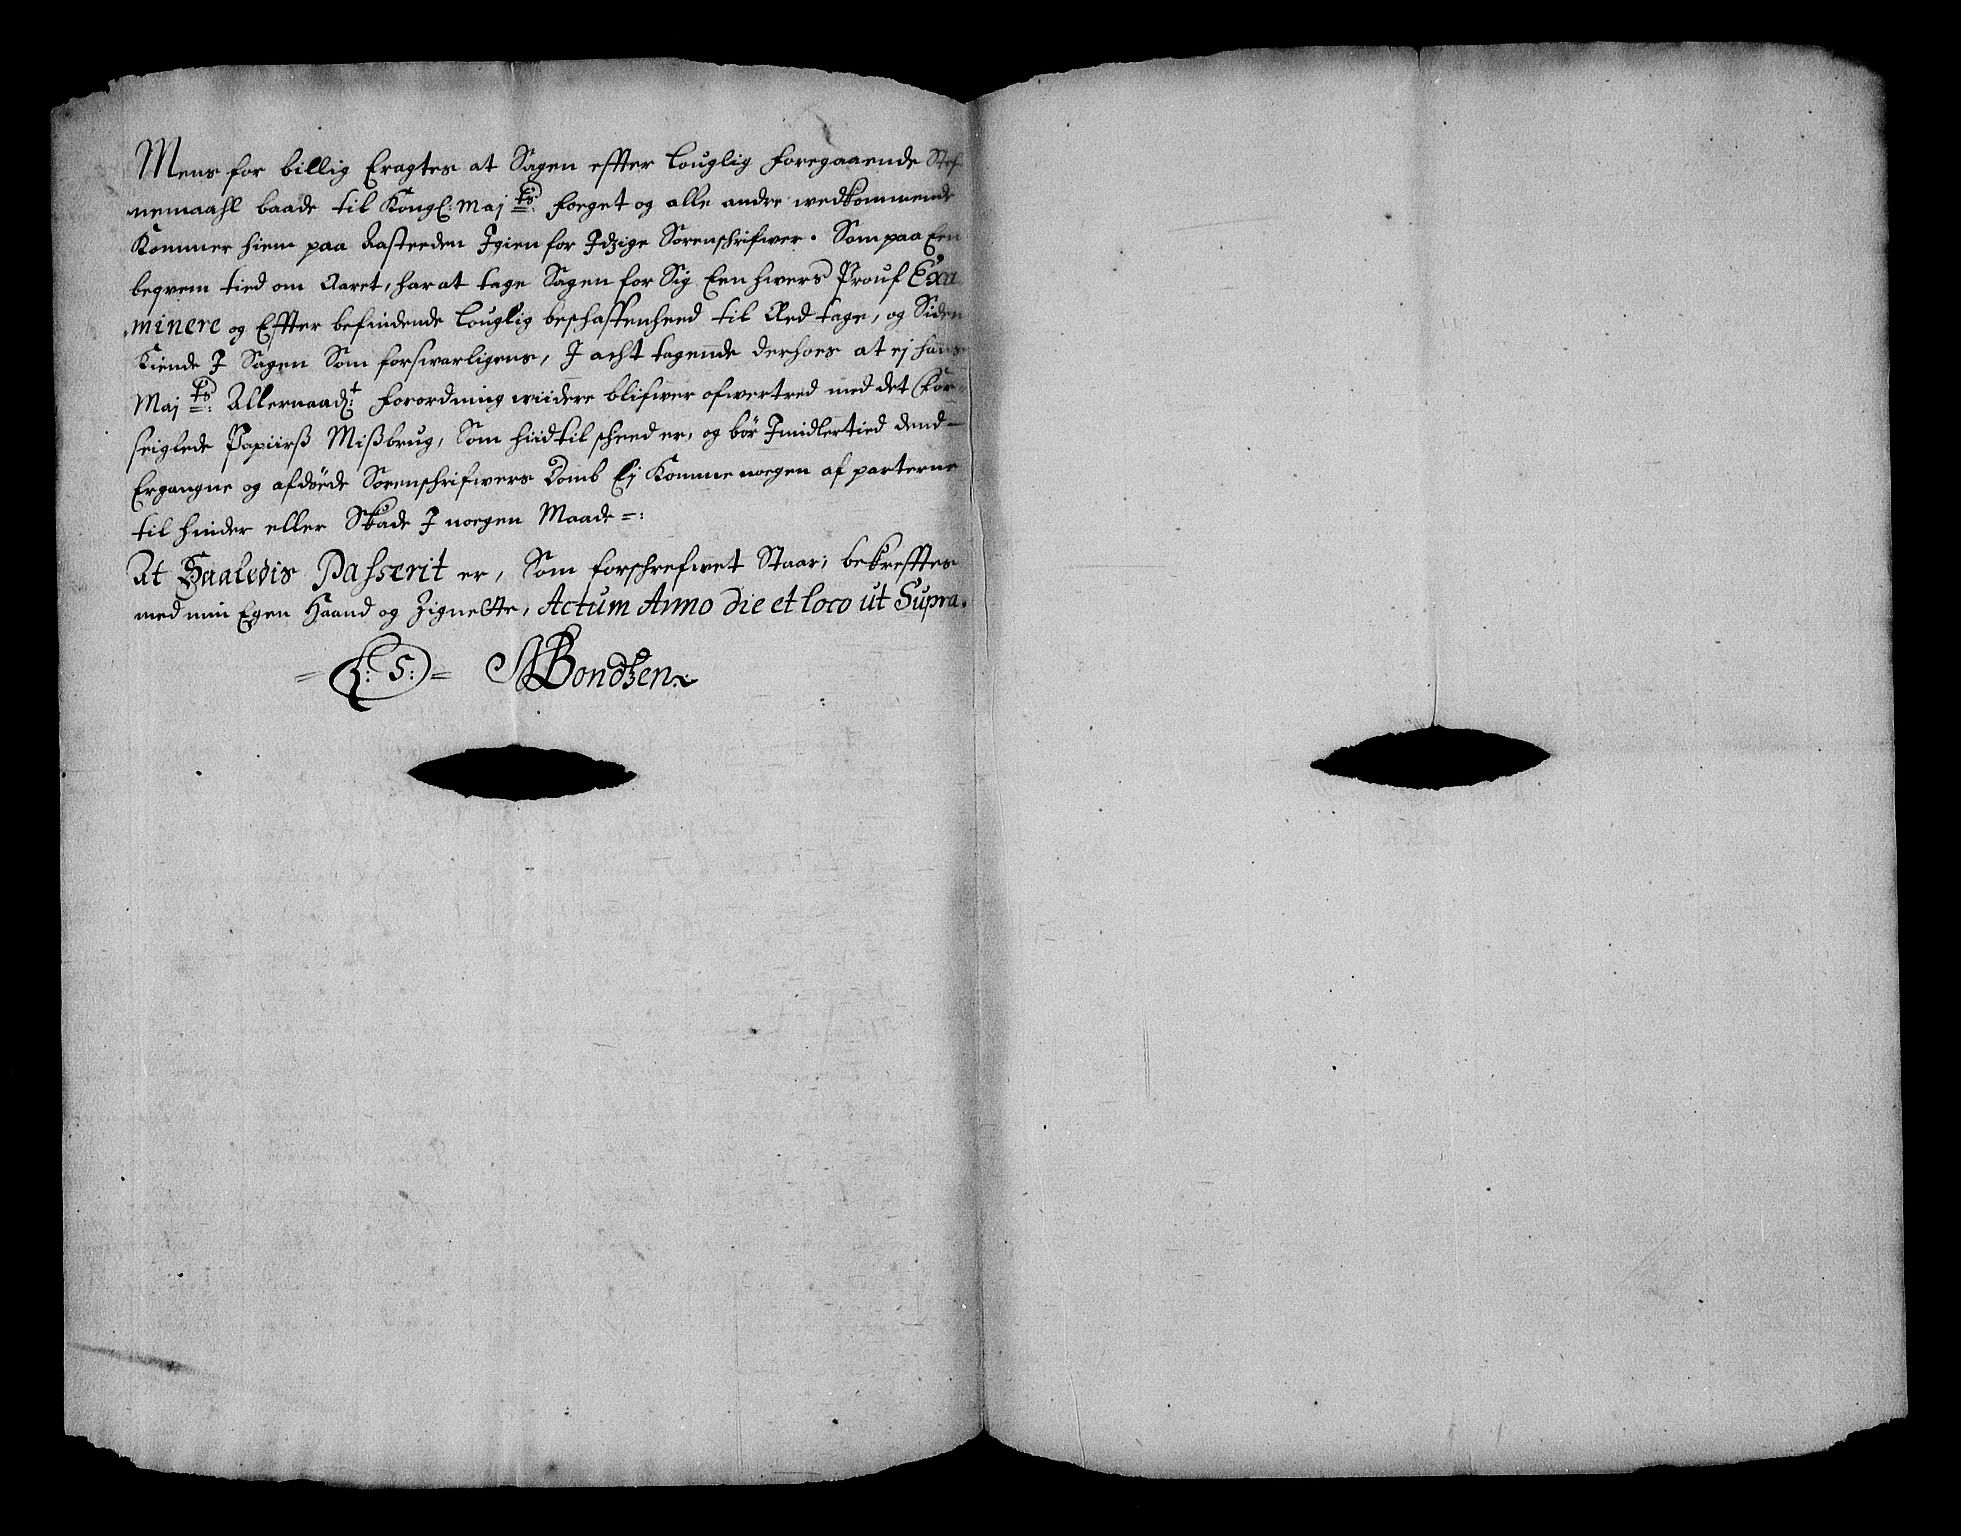 Mens for billig Eragtes at Sagen effter louglig foregaaende Stef-
nemaahl baade til Kongl: Maj ts: foeget og alle andre wedkommende
Kommer hiem paa Aasteeden Igien for Idzige Sorenschrifwer. Som paa Een
beqvem tied om Aaret, har at tage Sagen for Sig Een hwers Prouf Exa
minere og Effter befindende louglig beschaffenheed til Ræd tage, og Siden
Kiende J Sagen Som forswarligens, J acht tagende derhoes at ej hans
Maj ts: Allernaad:t forordning wiidere blifwer ofwertred med det For-
seiglede Papiirß Mißbrug, Som hiidtil scheed er, og bør Jmidlertied dend
Ergangne og afdøede Sorenschrifwers Domb Ej Komme noegen af parterne
til hinder eller Skade J noegen Maade =:
At Saaledis Passerit er, Som forschrefwet Staar; bekrefftes
med min Egen Haand og Zignette, Actum Anno die et loco ut Supra.
= L: S: = Bondtzen